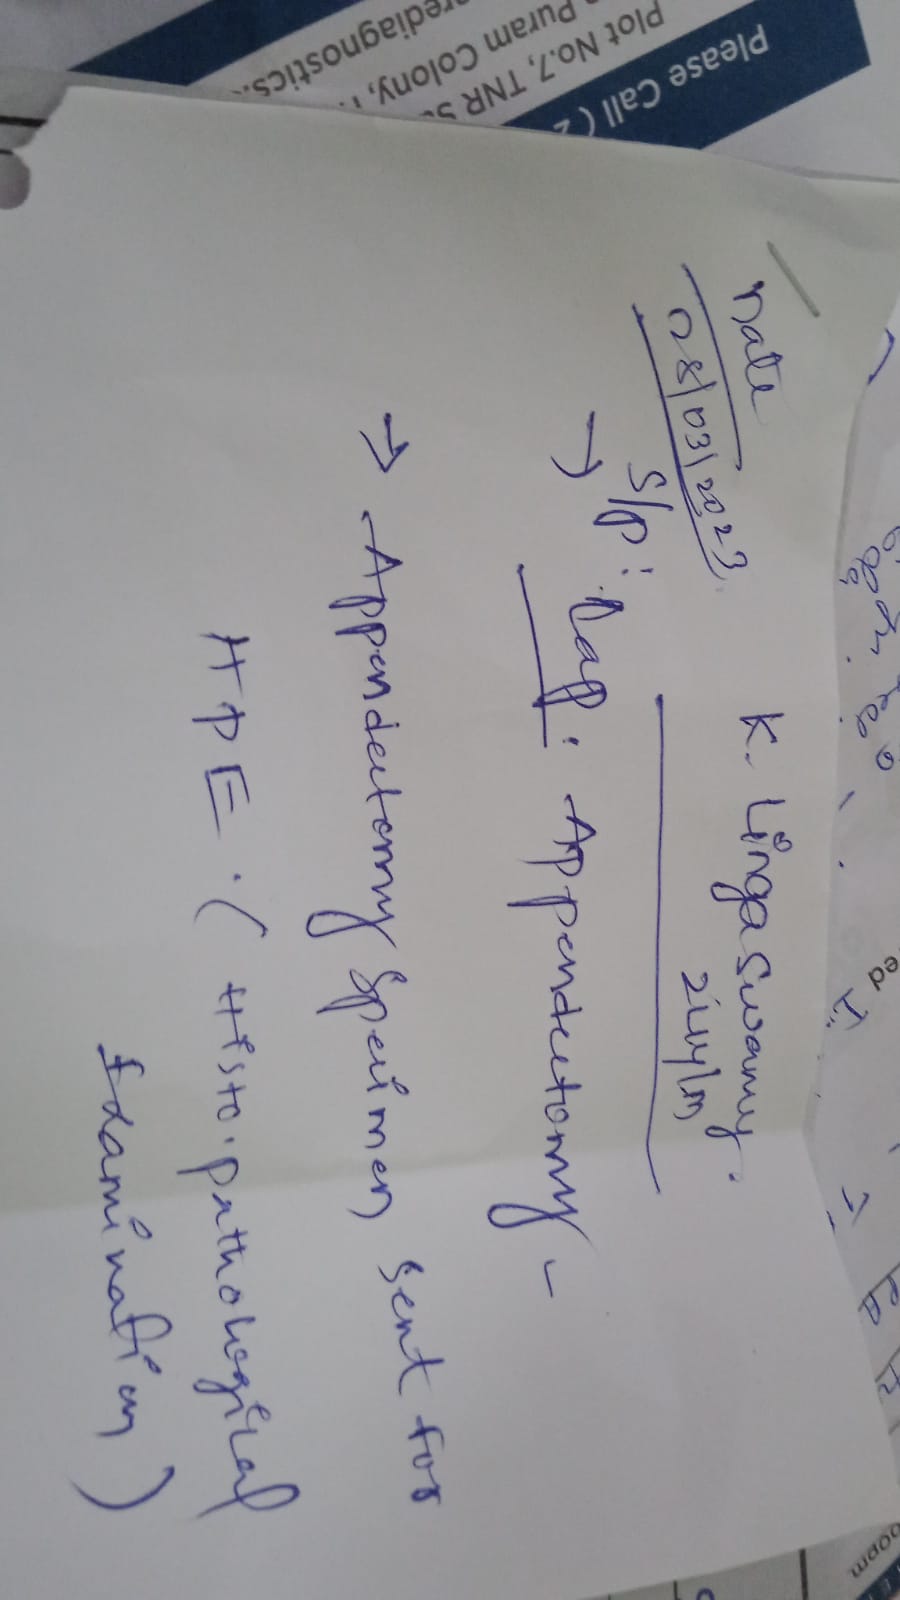 Please Call (
Plot No.7, TNR
Puram Colony,
rediagnostics.
Date
08/03/2023
K. Linga Swamy.
24y/m
→ S/p: Lap: Appendectomy -
→ Appendectomy Specimen sent for
HPE. (Histo.pathological
Examination)
ed